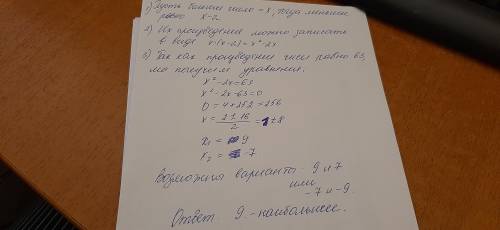 1) Пусть большее число – x, тогда меньшее
равно x-2
2) Их произведение можно записать
в виде x·(x-2)=x²-2x
3) Так как произведение чисел равно 63,
то получаем уравнения.
x²-2x=63
x²-2x-63=0
D=4+252=256
x=2±16/2=1±8
x₁=9
x₂=-7
Возможны варианты 9 и 7
или
-7 и -9.
Ответ 9-наибольшее.